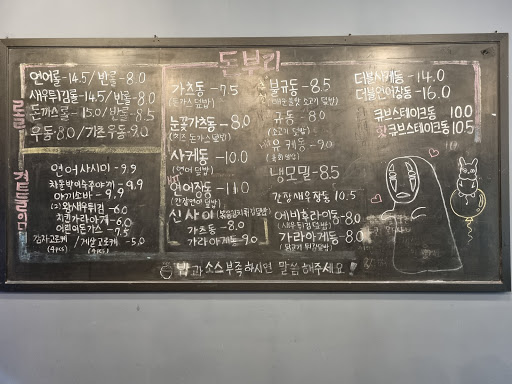 돈부리
연어롤-14.5/반롤-8.0
새우튀김롤-14.5/반롤-8.0
돈까스롤-15.0/반롤-8.5
우동8.0/가츠우동-9.0
연어사시미-9.9
아기소바-9.9
(2)왕새우튀김-6.0
치킨가라아게-6.0
어린이돈까스-7.5
감자고로케/게살고로케-5.0
(4pcs) (4pcs)
가츠동-7.5
(돈까스덮밥)
눈꽃가츠동-8.0
(치즈돈까스덮밥)
사케동-10.0
(연어덮밥)
연어장동-11.0
(간장연어덮밥)
신사이
가츠동-8.0
가라아게동-9.0
불규동-8.5
규동-8.0
(소고기덮밥)
유케동-9.0
냉모밀-8.5
간장새우장동 10.5
에비후라이동-8.0
(새우튀김덮밥)
가라아게동-8.0
(닭고기튀김덮밥)
더블사케동-14.0
더블연어장동-16.0
큐브스테이크동 10.0
핫큐브스테이크동 10.5
밥과 소스 부족하시면 말씀해주세요!